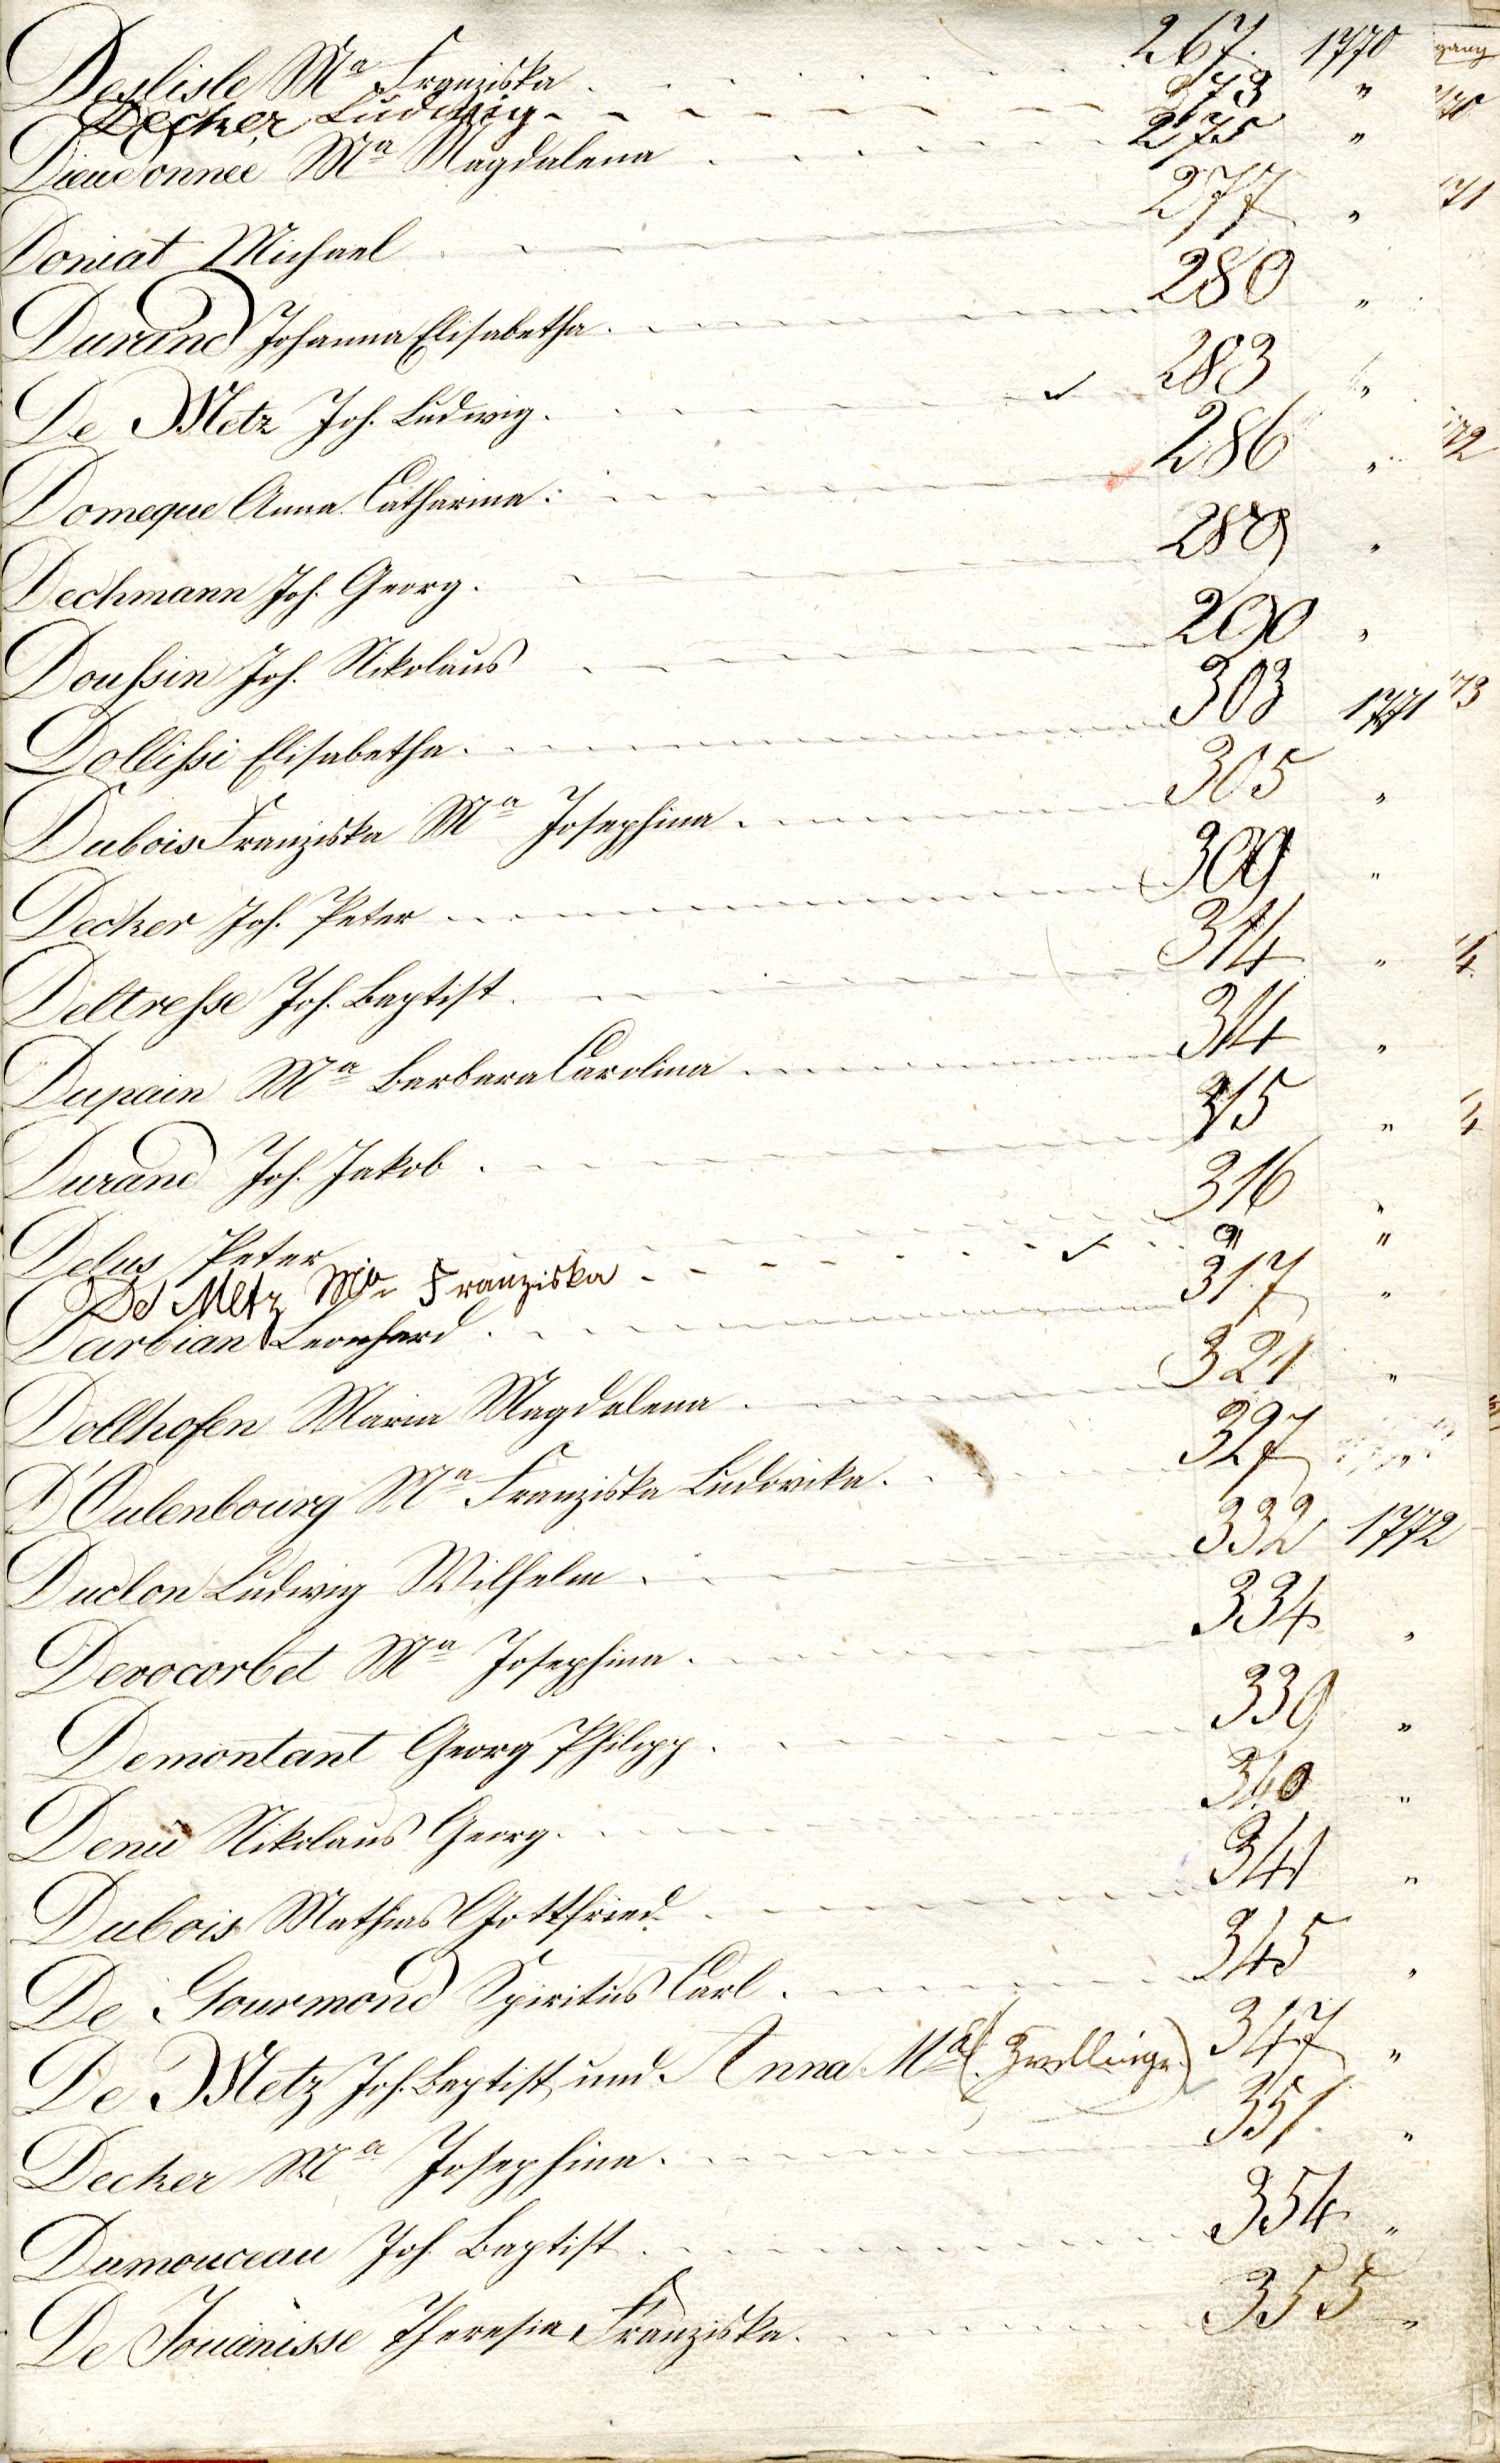 Deslisle Mª Franziska 267. 1770
Decker Ludwig 273 "
Dieudonneé Mª Magdalena 275 "
Doniat Michael 277 "
Durand Johanna Elisabetha. 280 "
De Metz Joh. Ludwig. ✓ 283 "
Domeque Anna Catharina: 286 "
Dechmann Joh. Georg. 289 "
Doußin Joh. Nikolaus 290 "
Dollißi Elisabetha. 303 1771
Dubois Franziska Mª Josephina. 305 "
Decker Joh. Peter 309 "
Deltreßse Joh. Baptist 314 "
Dupain Mª Barbara Carolina 314 "
Durand Joh. Jakob. 315 "
Delus Peter 316 "
De Metz Mª Franziska ✓ " "
Darbian Leonhard. 317 "
Dollhofen Maria Magdalena. 321 "
D'Oulenbourg Mª Franziska Ludovika. 327
Duclon Ludwig Wilhelm. 332 1772
Devocorbet Mª Josephina. 334 "
Demontant Georg Philipp. 339 "
Denü Nikolaus Georg. 340 "
Dubois Mathias Gottfried. 341 "
De Gourmond Spiritus Carl. 345 "
De Metz Joh. Baptist und Anna Mª (Zwillinge) 347 "
Decker Mª Josephina. 351. "
Dumouceau Joh Baptist. 354 "
De Jouanisse Theresia Franziska. 355 "